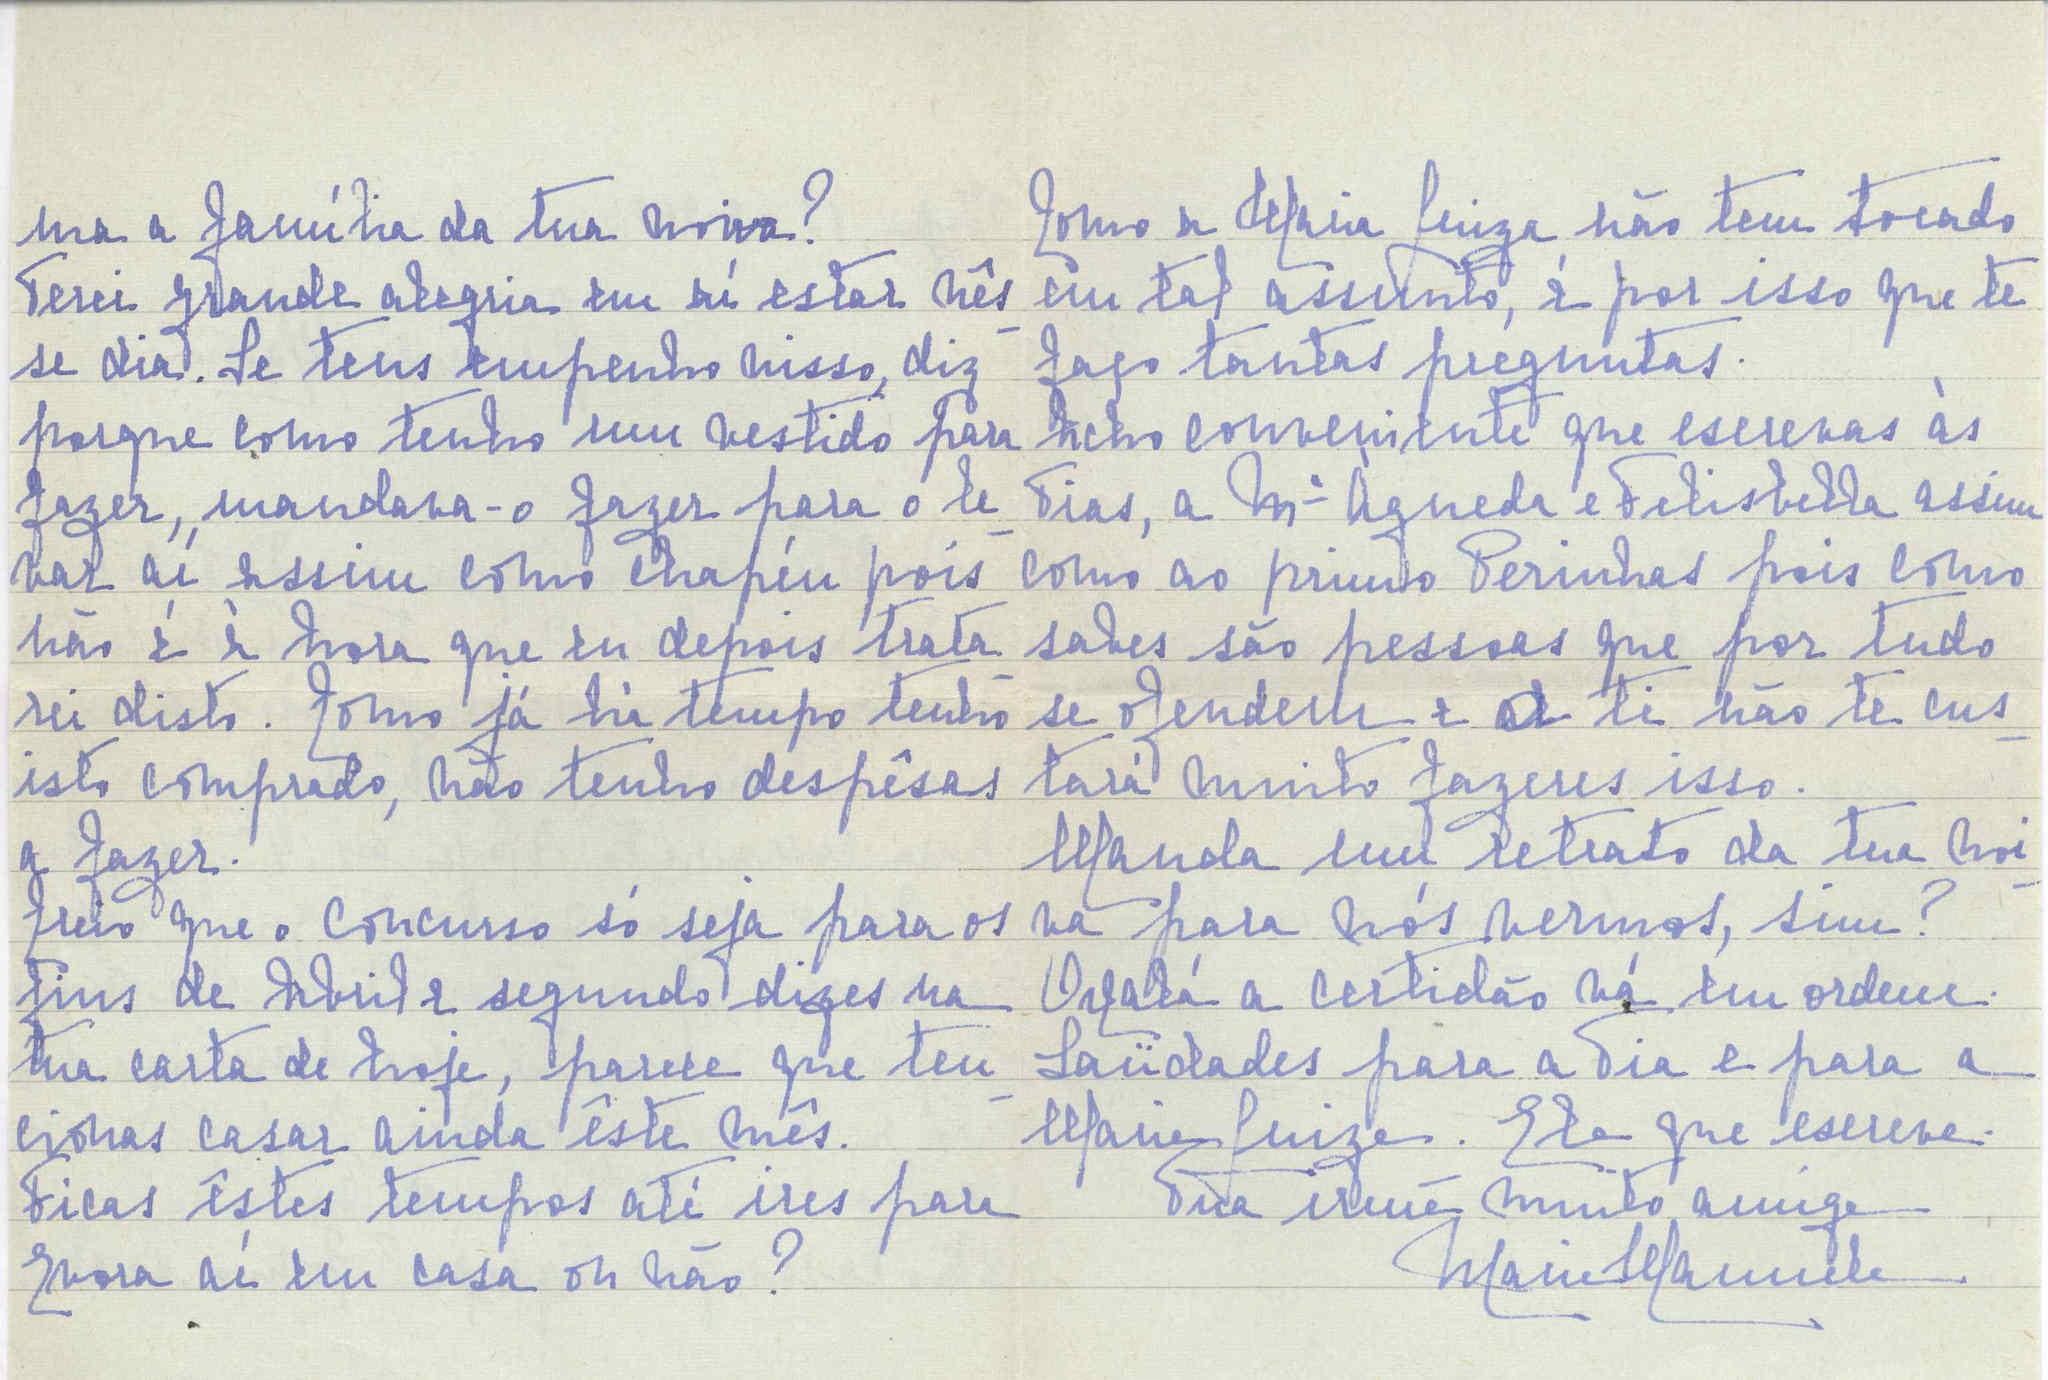 ma a família da tua noiva?
Terei grande alegria em aí estar nês
se dia. Se tens empenho nisso, diz
porque como tenho um vestido para
fazer, mandava-o fazer para o le
var aí assim como chapéu pois
não é à hora que eu depois trata
rei disto. Como já há tempo tenho
isto comprado, não tenho despêsas
a fazer.
Creio que o concurso só seja para os
fins de Abril e segundo dizes na
tua carta de hoje, parece que ten
cionas casar ainda êste mês.
Ficas êstes tempos até ires para
Evora aí em casa ou não?
Como a Maria Luiza não tem tocado
em tal assunto, é por isso que te
faço tantas preguntas.
Acho conveniente que escrevas às
Tias, a Mª Agueda e Felisbella assim
como ao primo Perinhas pois como
sabes são pessoas que por tudo
se ofendem e a ti não te cus
tará muito fazeres isso.
Manda um retrato da tua noi
va para nós vermos, sim?
Oxalá a certidão vá em ordem.
Saüdades para a Tia e para a
Maria Luiza. Ela que escreva.
Tua irmã muito amiga
Maria Manuela